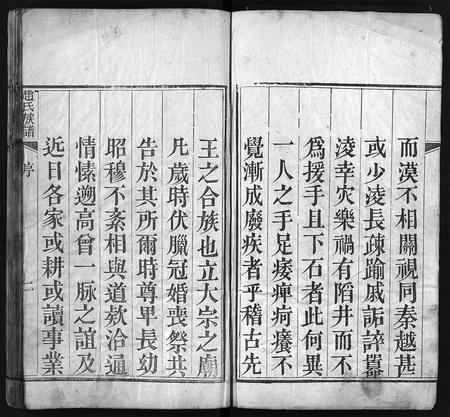 而漠不相關視同秦越甚
或少淩長疎踰戚詬誶嚚
淩幸灾樂禍有陷井而不
爲援手且下石者此何異
一人之手足痿痺疴癢不
覺漸成廢疾者乎稽古先
王之合族也立大宗之廟
凡歲時伏臘冠婚喪祭共
告於其所爾時尊卑長幼
昭穆不紊相與道欵洽通
情愫遡高曾一脉之誼及
近日各家或耕或讀事業
趙氏族譜
序
二